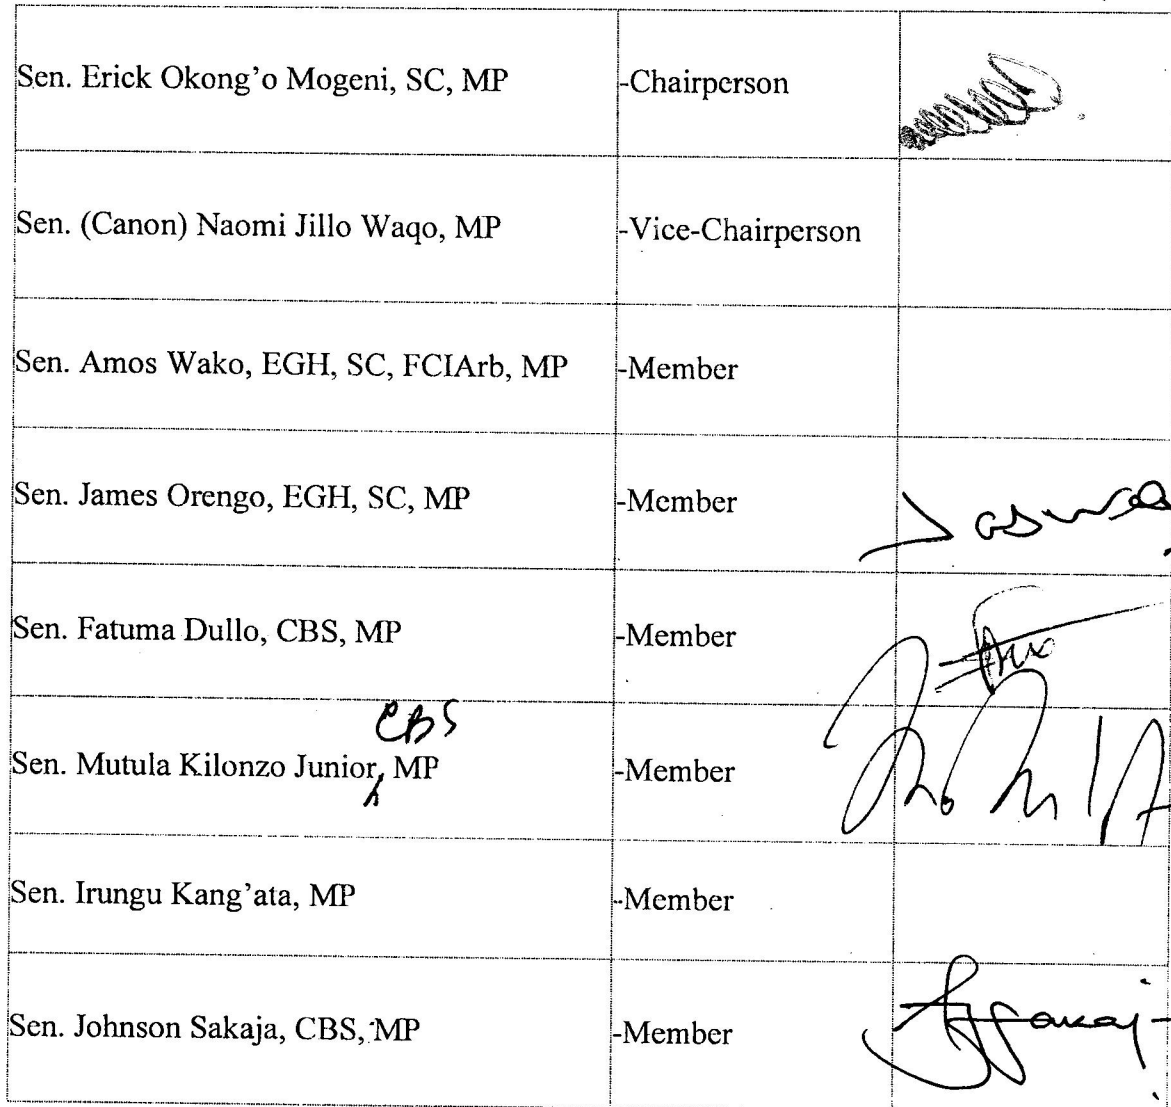 Sen. Erick Okong'o Mogeni, SC, MP -Chairperson
Sen. (Canon) Naomi Jillo Waqo, MP -Vice-Chairperson
Sen. Amos Wako, EGH, SC, FCIArb, MP -Member
Sen. James Orengo, EGH, SC, MP -Member
Sen. Fatuma Dullo, CBS, MP -Member
CBS
Sen. Mutula Kilonzo Junior, MP -Member
Sen. Irungu Kang'ata, MP -Member
Sen. Johnson Sakaja, CBS, MP -Member